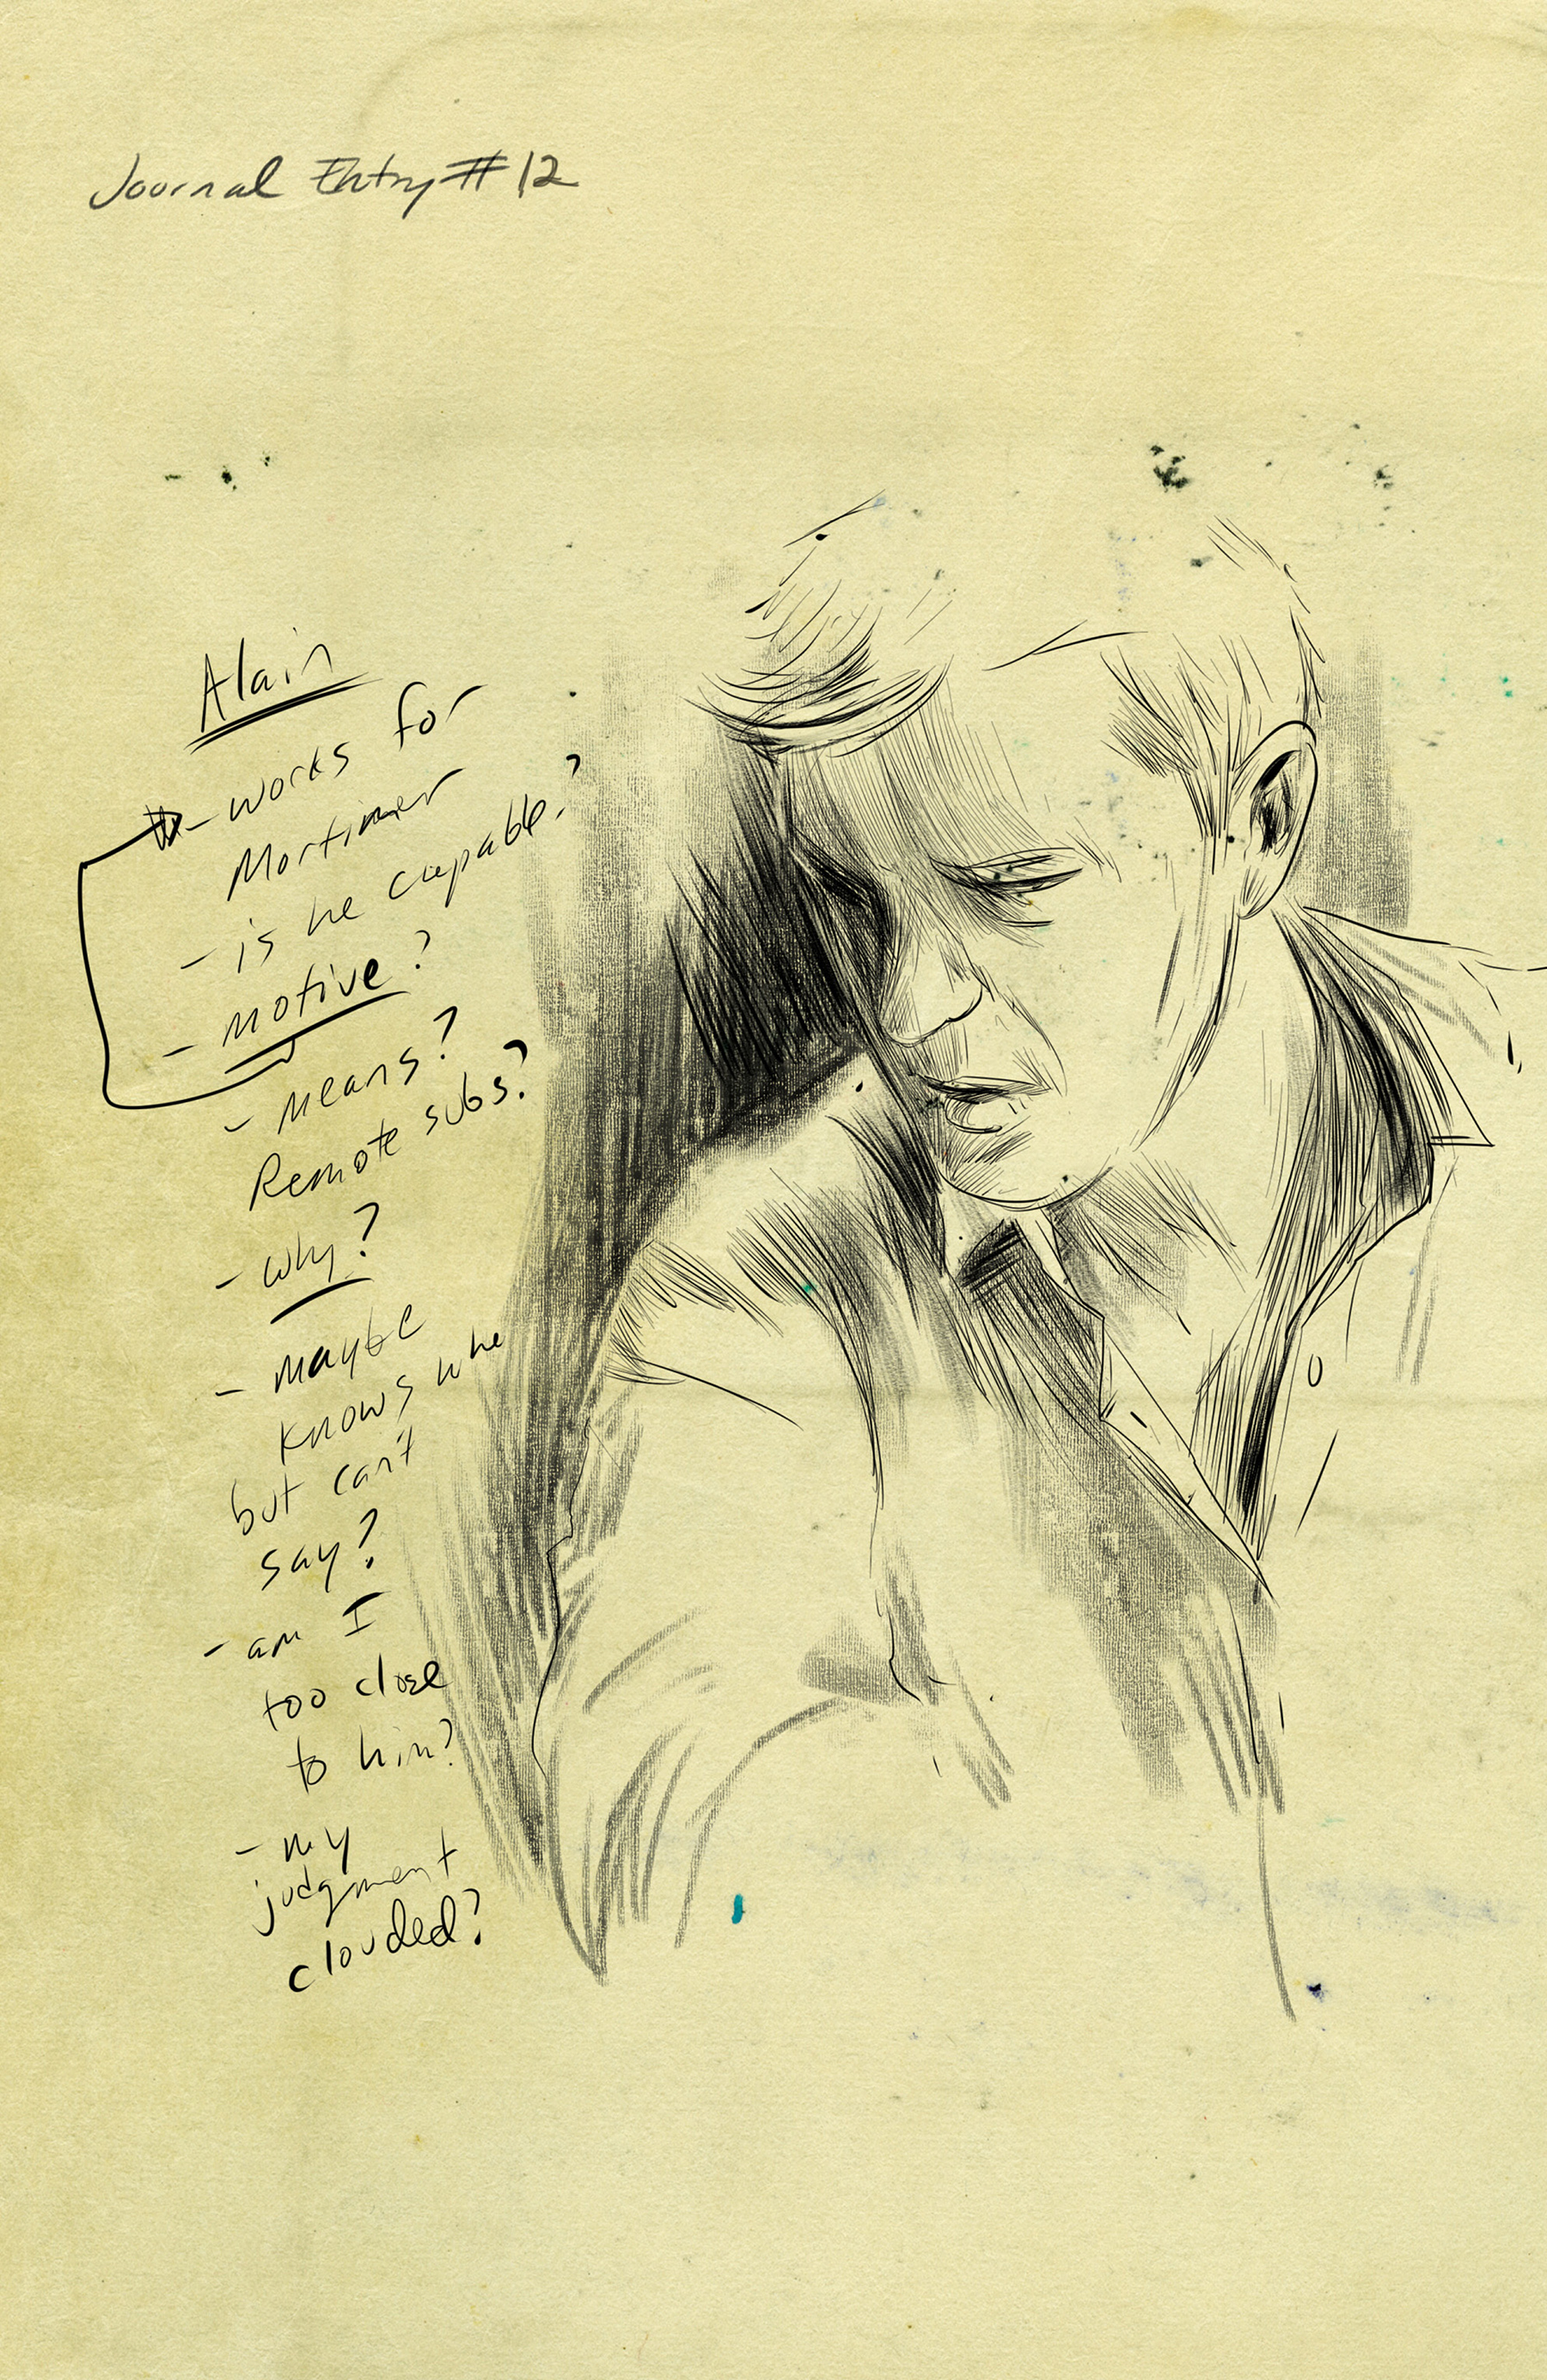 Journal Entry # 12
Alain
- works for
Mortimer
- is he capable?
- motive?
- means?
Remote subs?
- why?
- maybe
knows who
but can't
say?
- am I
too close
to him?
- my
judgment
clouded?